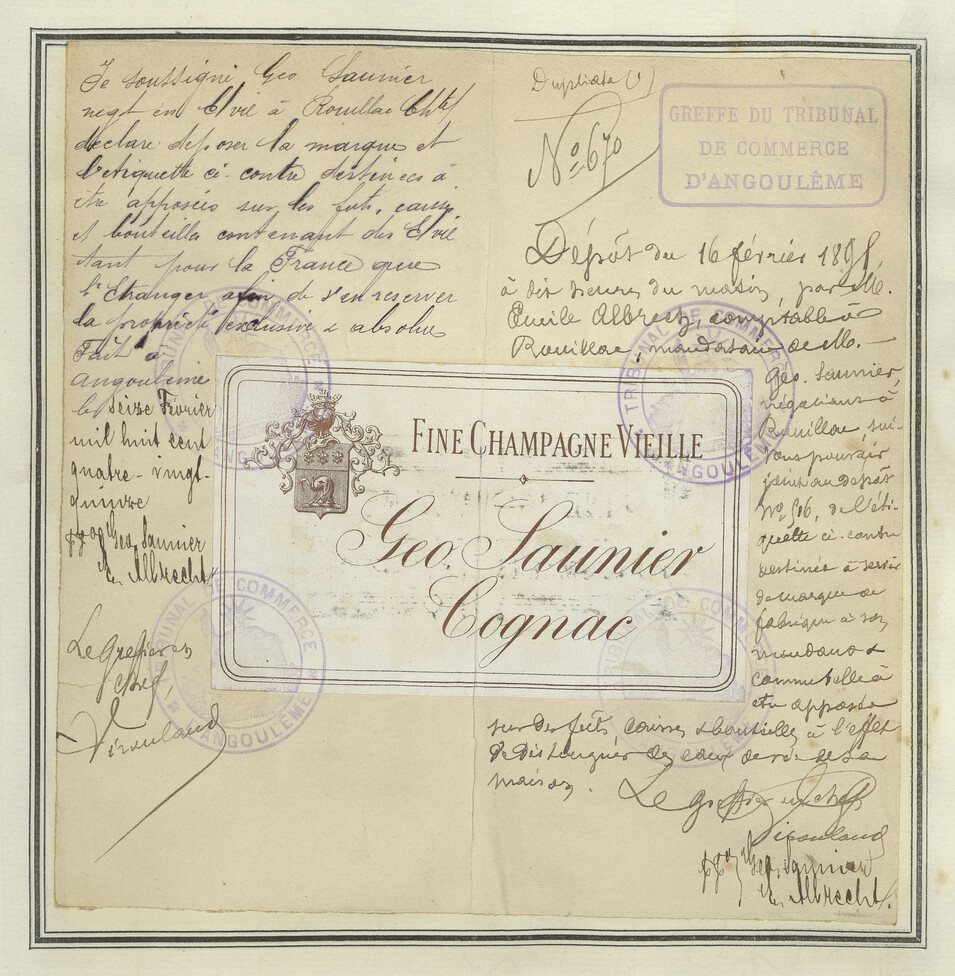 Je soussigné Geo Saunier
negt en E/vie à Rouillac Chte
déclare déposer la marque et
l'etiquette ci-contre destinées à
être apposées sur les futs, caisses
et bouteilles contenant des E/vie
tant pour la France que
l'Etranger afin de s'en reserver
la propriété exclusive & absolue
Fait à
Angoulême
le Seize Fevrier
mil huit cent
quatre-vingt-
quinze
ppon Geo. Saunier
E. Albrecht
Le Greffier en
chef
Duplicata (1)
No 670
GREFFE DU TRIBUNAL
DE COMMERCE
D'ANGOULÊME
Dépôt du 16 février 1895,
à dix heures du matin, par M.
Emile Albrecht, comptable à
Rouillac, mandataire de M.
Géo. Saunier,
négociant à
Rouillac, sui-
vant pouvoir
joint au dépôt
No 506, de l'éti-
quette ci-contre
destinée à servir
de marque de
fabrique à son
mandant &
comme telle à
être apposée
sur des fûts, caisses & bouteilles, à l'effet
de distinguer les eaux de vie de sa
maison.
Le greffier en chef
ppon Geo. Saunier
E. Albrecht
FINE CHAMPAGNE VIEILLE
Geo. Saunier
Cognac
TRIBUNAL DE COMMERCE
ANGOULÊME
TRIBUNAL DE COMMERCE
ANGOULÊME
TRIBUNAL DE COMMERCE
D'ANGOULÊME
TRIBUNAL DE COMMERCE